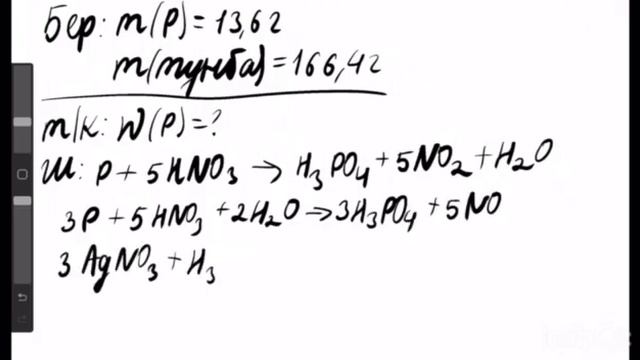 Бер: m(P) = 13,6г
m(тұнба) = 166,4г
т/к: W(P) = ?
Ш: P + 5HNO₃ → H₃PO₄ + 5NO₂ + H₂O
3P + 5HNO₃ + 2H₂O → 3H₃PO₄ + 5NO
3AgNO₃ + H₃